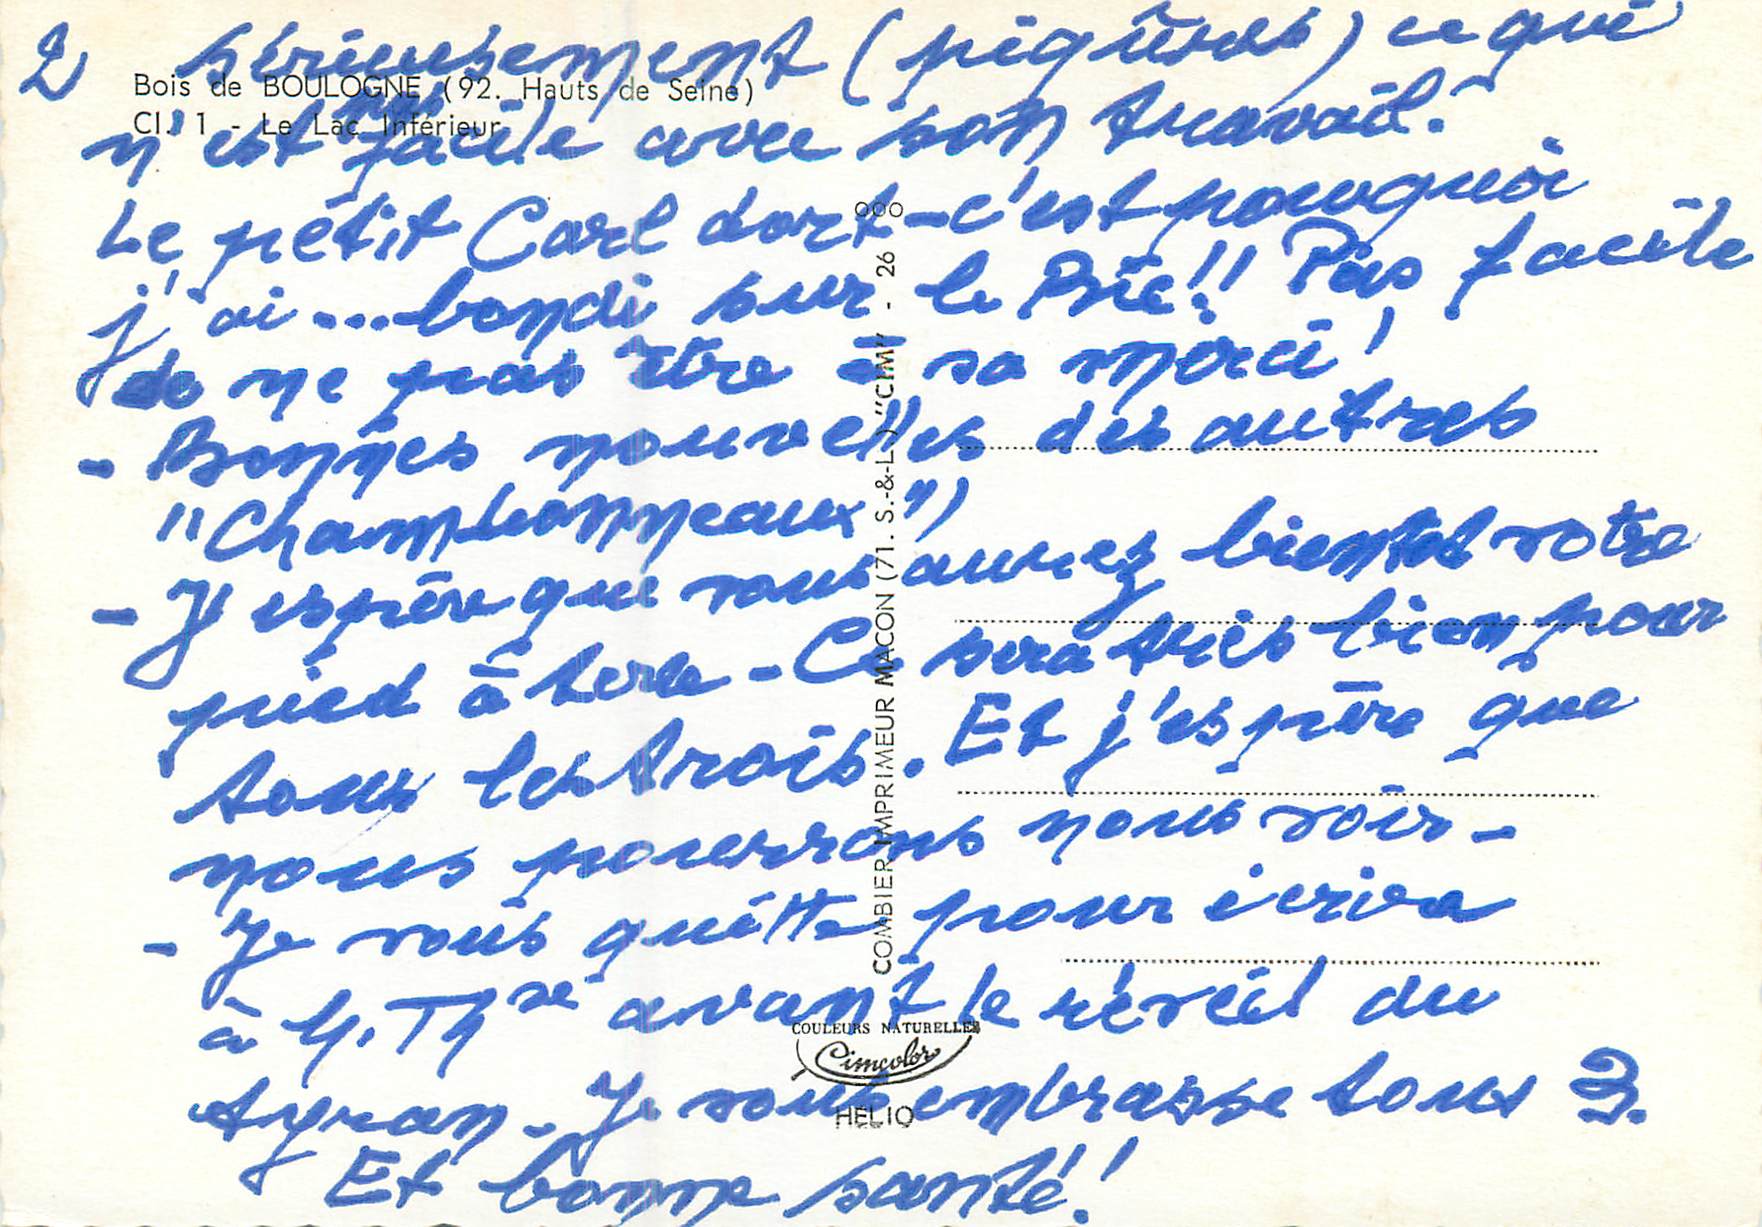 2 sérieusement (piqûres) ce qui
Bois de BOULOGNE (92. Hauts de Seine)
Cl. 1 - Le Lac Inférieur
n'est pas facile avec son travail.
Le petit Carl dort - c'est pourquoi
j'ai ... bondi sur le Bic!! Pas facile
de ne pas être à sa merci!
- Bonnes nouvelles des autres
"Chambonneaux")
- J'espère que vous aurez bientôt votre
pied à terre - Ce sera très bien pour
tous les trois. Et j'espère que
nous pourrons nous voir -
- Je vous quitte pour écrire
à M. Thse avant le réveil du
tyran - Je vous embrasse tous 3.
Et bonne santé!
COMBIER IMPRIMEUR MACON (71. S.-&-L.) "CIM" - 26 000
COULEURS NATURELLES
Cimcolor
HELIO